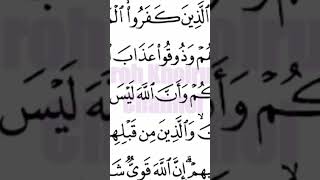 ٱلَّذِينَ كَفَرُوا۟ ٱلْمَ
هُمْ وَذُوقُوا۟ عَذَابَ
كُمْ وَأَنَّ ٱللَّهَ لَيْسَ
وَٱلَّذِينَ مِن قَبْلِهِ
بِهِمْ ۗ إِنَّ ٱللَّهَ قَوِىٌّ شَ